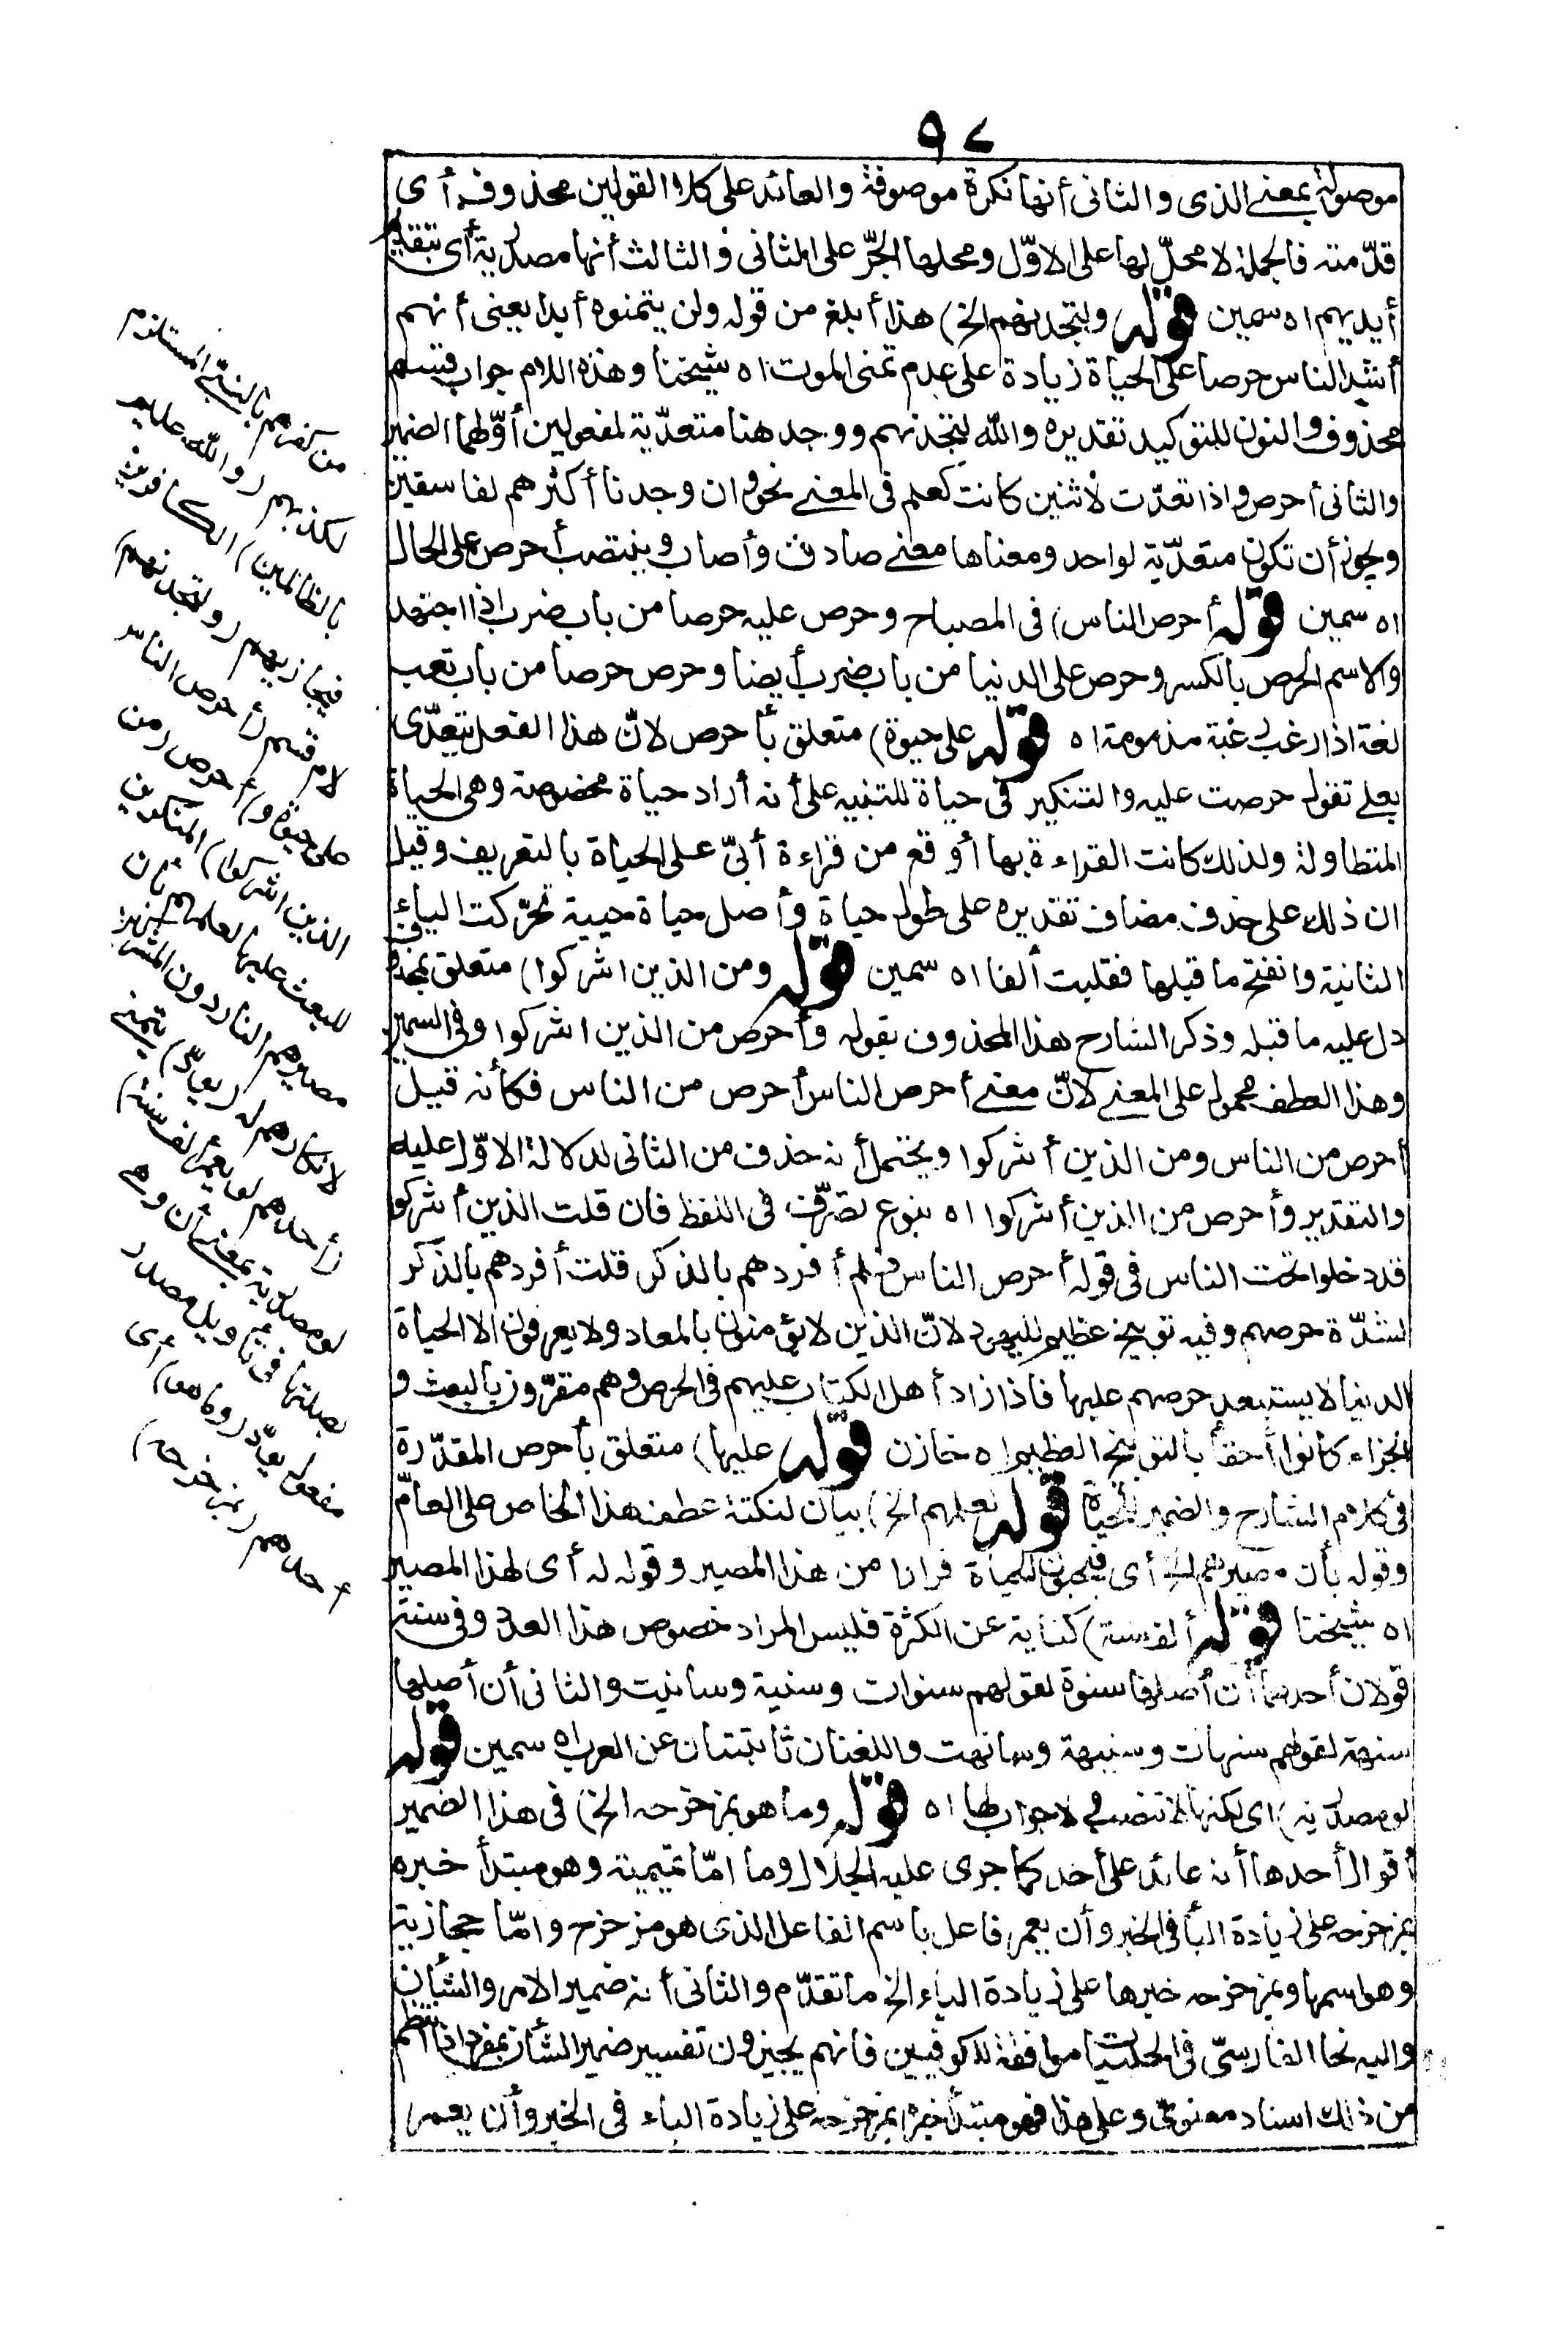 ٩٧
موصولة بمعنى الذى والثانى أنها نكرة موصوفة والعائد على كلا القولين محذوف أى
قدّمته فالجملة لا محلّ لها على الاوّل ومحلها الجرّ على الثانى والثالث أنها مصدرية أى بتقديم
أيديهم اه سمين قوله ولتجدنهم الخ) هذا أبلغ من قوله ولن يتمنوه أبدا يعنى أنهم
أشد الناس حرصا على الحياة زيادة على عدم تمنى الموت اه شيخنا وهذه اللام جواب قسم
محذوف والنون للتوكيد تقديره والله لتجدنهم ووجد هنا متعدّية لمفعولين أوّلهما الضمير
والثانى أحرص واذا تعدّت لاثنين كانت كعلم فى المعنى نحو وان وجدنا أكثرهم لفاسقين
ويجوز أن تكون متعدّية لواحد ومعناها معنى صادف وأصاب وينتصب أحرص على الحال
اه سمين قوله أحرص الناس) فى المصباح وحرص عليه حرصا من باب ضرب اذا اجتهد
والاسم الحرص بالكسر وحرص على الدنيا من باب ضرب أيضا وحرص حرصا من باب تعب
لغة اذا رغب رغبة مذمومة اه قوله على حيوة) متعلق بأحرص لانّ هذا الفعل يتعدّى
بعلى تقول حرصت عليه والتنكير فى حياة للتنبيه على أنه أراد حياة مخصوصة وهى الحياة
المتطاولة ولذلك كانت القراءة بها أوقع من قراءة أبىّ على الحياة بالتعريف وقيل
ان ذلك على حذف مضاف تقديره على طول حياة وأصل حياة حيية تحرّكت الياء
الثانية وانفتح ما قبلها فقلبت ألفا اه سمين قوله ومن الذين اشركوا) متعلق بمحذوف
دل عليه ما قبله وذكر الشارح هذا المحذوف بقوله وأحرص من الذين اشركوا وفى السمين
وهذا العطف محمول على المعنى لانّ معنى أحرص الناس أحرص من الناس فكأنه قيل
أحرص من الناس ومن الذين أشركوا ويحتمل أنه حذف من الثانى لدلالة الاوّل عليه
والتقدير وأحرص من الذين أشركوا اه بنوع تصرّف فى اللفظ فان قلت الذين أشركوا
قد دخلوا تحت الناس فى قوله أحرص الناس فلم أفردهم بالذكر قلت أفردهم بالذكر
لشدّة حرصهم وفيه توبيخ عظيم لليهود لانّ الذين لا يؤمنون بالمعاد ولا يعرفون الا الحياة
الدنيا لا يستبعد حرصهم عليها فاذا زاد أهل الكتاب عليهم فى الحرص وهم مقرّون بالبعث و
الجزاء كانوا أحق بالتوبيخ العظيم اه خازن قوله عليها) متعلق بأحرص المقدّرة
فى كلام الشارح والضمير للحياة قوله لعلمهم الخ) بيان لنكتة عطف هذا الخاص على العامّ
وقوله بأن مصيرهم أى فيحبون الحياة فرارا من هذا المصير وقوله له أى لهذا المصير
اه شيخنا قوله ألف سنة) كناية عن الكثرة فليس المراد خصوص هذا العدد وفى سنة
قولان أحدهما أن أصلها سنوة لقولهم سنوات وسنية وسانيت والثانى أن أصلها
سنهة لقولهم سنهات وسنيهة وسانهت واللغتان ثابتتان عن العرب اه سمين قوله
لو مصدرية) اى لكنها لا تنصب فى لا جواب لها اه قوله وما هو بمزحزحه الخ) فى هذا الضمير
أقوال أحدها أنه عائد على أحد كما جرى عليه الجلال وما امّا تميمية وهو مبتدأ خبره
بمزحزحه على زيادة البا فى الخبر وأن يعمر فاعل باسم الفاعل الذى هو مزحزح وامّا حجازية
وهو اسمها وبمزحزحه خبرها على زيادة الباء الخ ما تقدّم والثانى أنه ضمير الامر والشأن
واليه نحا الفارسىّ فى الحلبيات موافقة للكوفيين فانهم يجيزون تفسير ضمير الشأن بمفرد اذا انتظم
من ذلك اسناد معنوىّ وعلى هذا فهو مبتدأ خبره بمزحزحه على زيادة الباء فى الخبر وأن يعمر
من كفرهم بالنبى المستلزم
لكذبهم (والله عليم
بالظالمين) الكافرين
فيجازيهم (ولتجدنهم)
لام قسم (أحرص الناس
على حيوة و) أحرص (من
الذين اشركوا) المنكرين
للبعث عليها لعلمهم بأن
مصيرهم النار دون المشركين
لانكارهم له (يودّ) يتمنى
(أحدهم لو يعمر ألف سنة)
لو مصدرية بمعنى أن وهى
بصلتها فى تأويل مصدر
مفعول يودّ (وما هو) أى
أحدهم (بمزحزحه)